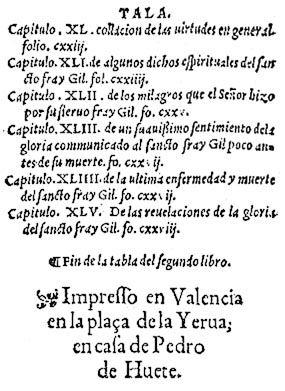 TALA.
Capitulo . XL. collacion de las virtudes en general
folio. cxxiij.
Capitulo. XLI. de algunos dichos espirituales del san
cto fray Gil. fol. cxxiiij.
Capitulo . XLII . de los milagros que el Señor hizo
por su sieruo fray Gil. fo. cxxv.
Capitulo. XLIII. de un suauissimo sentimiento dela
gloria communicado al sancto fray Gil poco an
tes de su muerte. fo. cxxvij
Capitulo. XLIIII. de la ultima enfermedad y muerte
del sancto fray Gil. fo. cxxvij.
Capitulo. XLV. De las reuelaciones de la gloria
del sancto fray Gil. fo. cxxviij.
¶ Fin de la tabla del segundo libro.
Impresso en Valencia
en la plaça de la Yerua;
en casa de Pedro
de Huete.